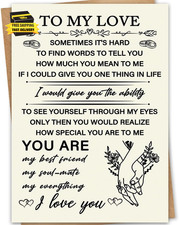 FREE SHIPPING
FAST DELIVERY
TO MY LOVE
SOMETIMES IT'S HARD
TO FIND WORDS TO TELL YOU
HOW MUCH YOU MEAN TO ME
IF I COULD GIVE YOU ONE THING IN LIFE
I would give you the ability
TO SEE YOURSELF THROUGH MY EYES
ONLY THEN YOU WOULD REALIZE
HOW SPECIAL YOU ARE TO ME
YOU ARE
my best friend
my soul-mate
my everything
I love you